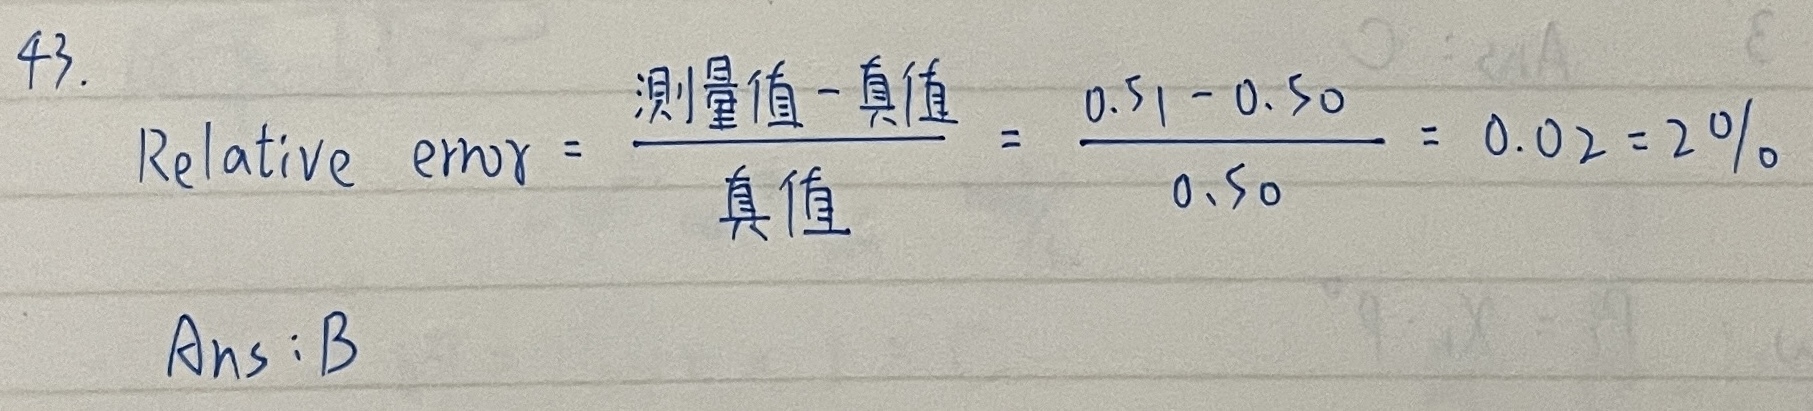 43.
Relative error = (測量值 - 真值) / 真值 = (0.51 - 0.50) / 0.50 = 0.02 = 2%
Ans : B